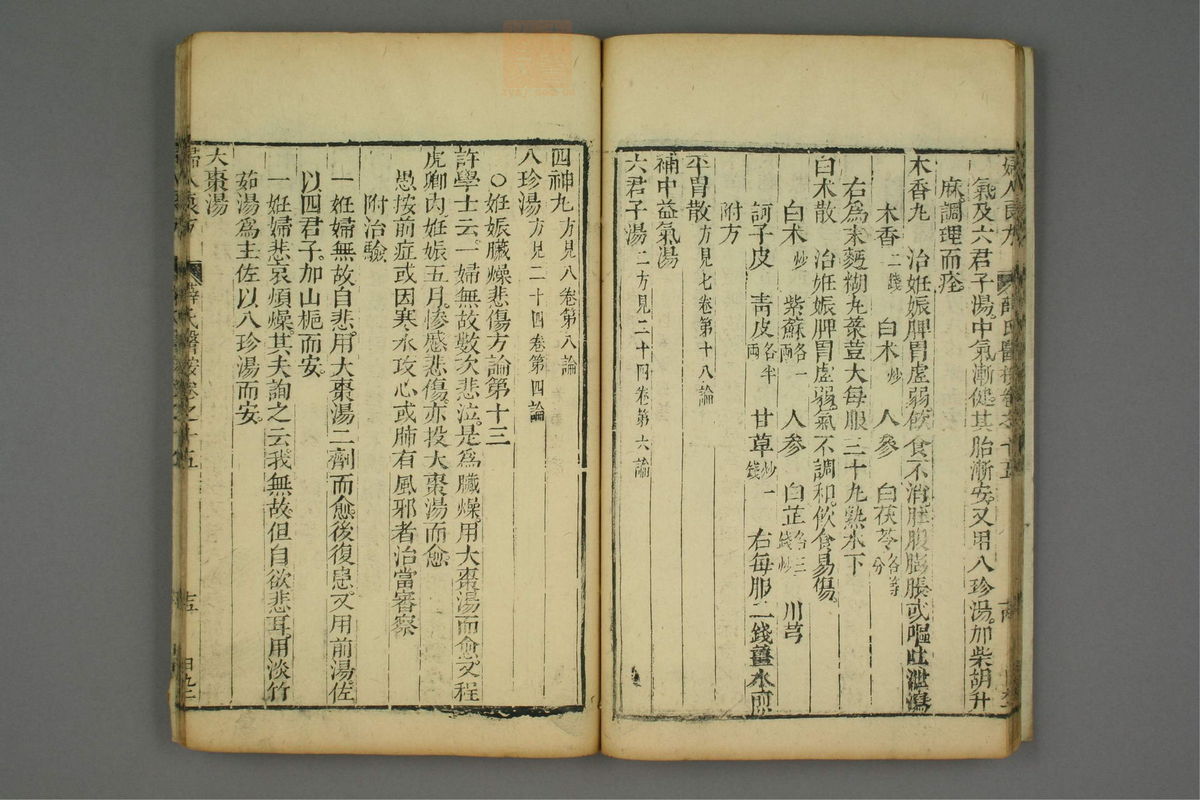 氣及六君子湯中氣漸健其胎漸安又用八珍湯加柴胡升
麻調理而痊
木香丸　治妊娠脾胃虛弱飲食不消肚腹膨脹或嘔吐泄瀉
木香二錢　白朮炒　人參　白茯苓各等分
右爲末麪糊丸菉荳大每服二十丸熟水下
白朮散　治妊娠脾胃虛弱氣不調和飲食易傷
白朮炒　紫蘇各一兩　人參　白芷各三錢炒　川芎
訶子皮　靑皮各半兩　甘草炒一錢　右每服二錢薑水煎
附方
平胃散方見七卷第十八論
補中益氣湯
六君子湯二方見二十四卷第六論
四神丸方見八卷第八論
八珍湯方見二十四卷第四論
○妊娠臟燥悲傷方論第十三
許學士云一婦無故數次悲泣是爲臟燥用大棗湯而愈又程
虎卿內妊娠五月慘慼悲傷亦投大棗湯而愈
愚按前症或因寒水攻心或肺有風邪者治當審察
附治驗
一妊婦無故自悲用大棗湯二劑而愈後復患又用前湯佐
以四君子加山梔而安
一妊婦悲哀煩燥其夫詢之云我無故但自欲悲耳用淡竹
茹湯爲主佐以八珍湯而安
大棗湯
薛氏醫按卷之十五